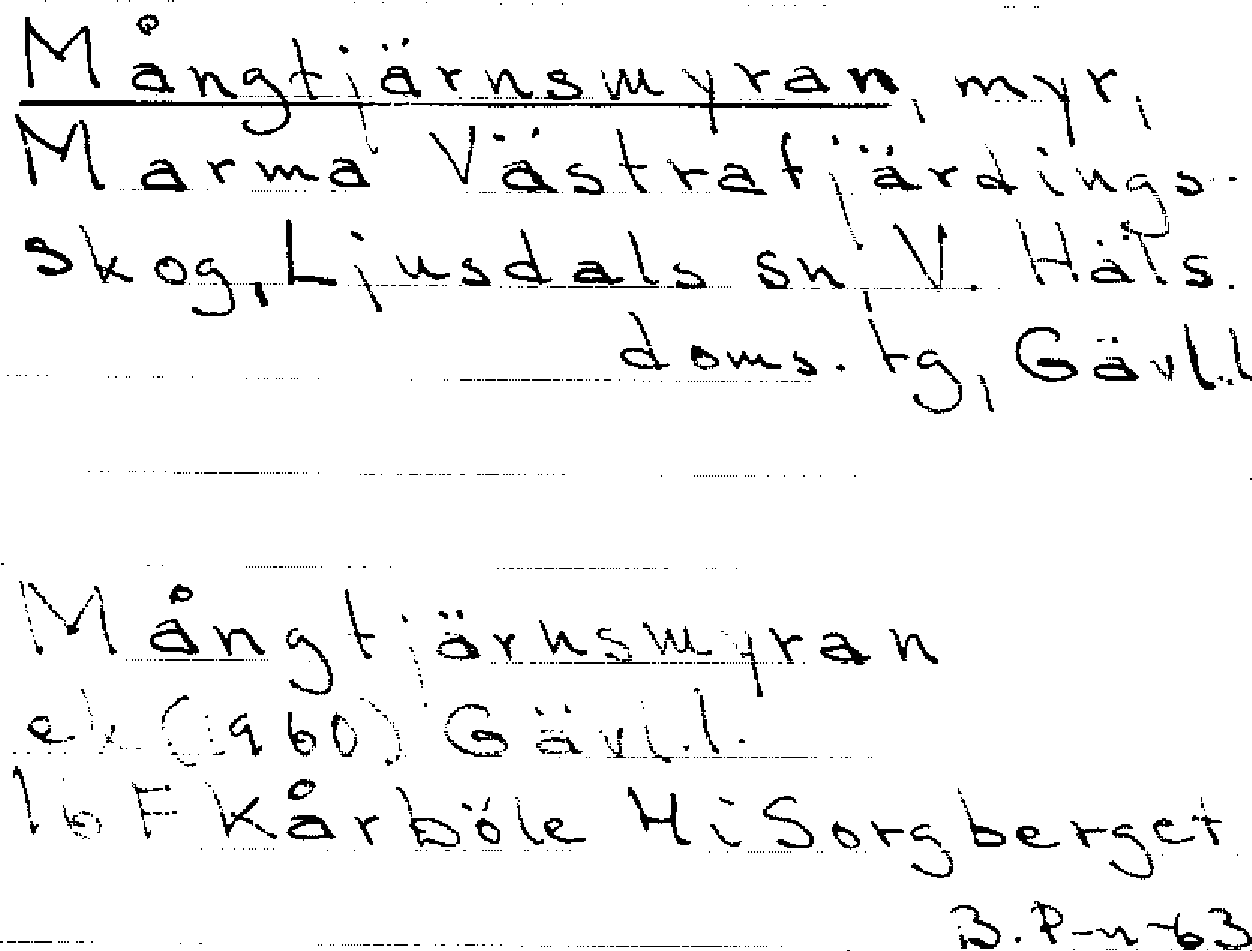 Mångtjärnsmyran, myr,
Marma Västrafjärdings-
skog, Ljusdals sn, V. Häls.
doms. tg, Gävl.l
Mångtjärnsmyran
ek (1960) Gävl.l.
16F Kårböle 4i Sorgberget
B. P-n -63